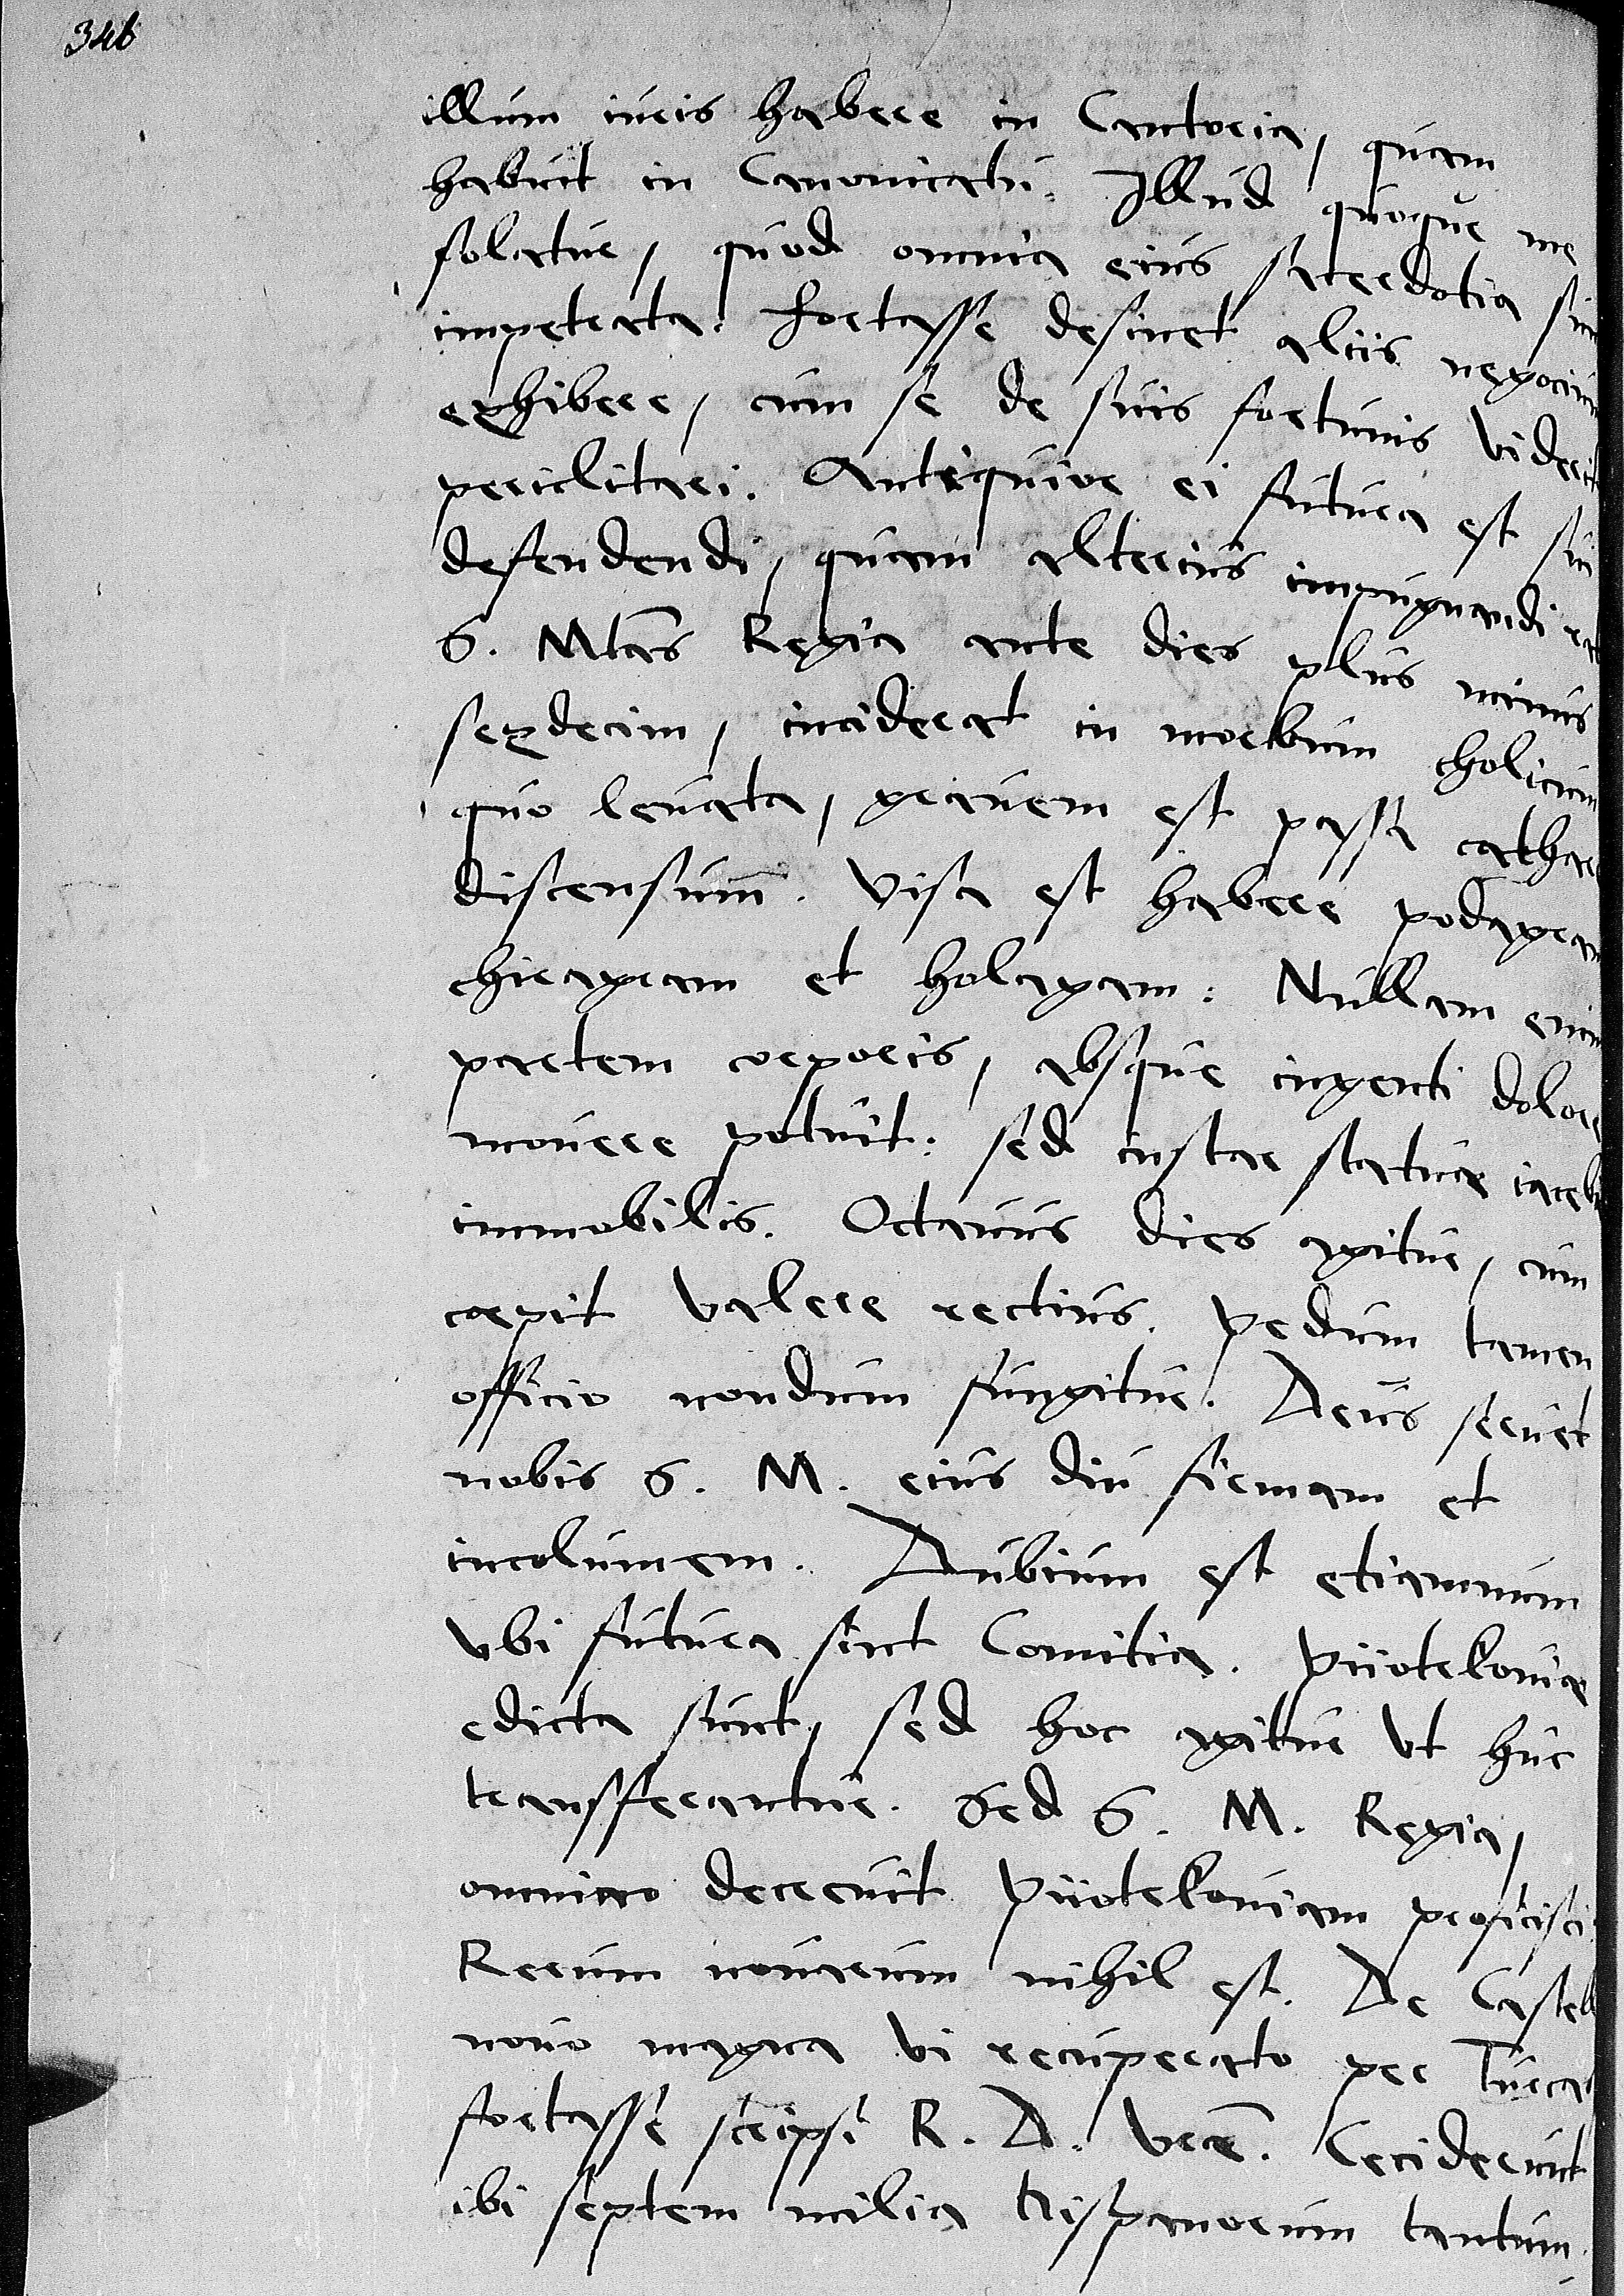 346
illum iuris habere in Cantoria, quam
habuit in Canonicatu. Illud quoque me
solatur, quod omnia eius sacerdotia sin
impetrata. Fortasse desinet aliis negocium
exhibere, cum se de suis fortunis viderit
periclitari. Antiquior ei futura est sui
defendendi, quam alterius impugnandi
S. Mtas Regia ante dies plus minus
sexdecim, inciderat in morbum cholicum
quo levata, gravem est passa cathar
discensum. Visa est habere podagram
chiragram et holagram: Nullam enim
partem corporis, absque ingenti dolore
movere potuit: sed instar statuae iaceb
immobilis. Octavus dies agitur, cum
coepit valere rectius. Pedum tamen
officio nondum fungitur. Deus servet
nobis S. M. eius diu firmam et
incolumem. Dubium est etiamnum
vbi futura sint Comitia. Piiotrkoviae
edicta sunt, sed hoc agitur vt huc
transfferantur. Sed S. M. Regia,
omnino decrevit Piiotrkoviam proficisci
Rerum novarum nihil est. De Castell
novo magna vi recuperato per Turcas
fortasse scripsi R. D. Vrae. Ceciderunt
ibi septem milia Hispanorum tantum.